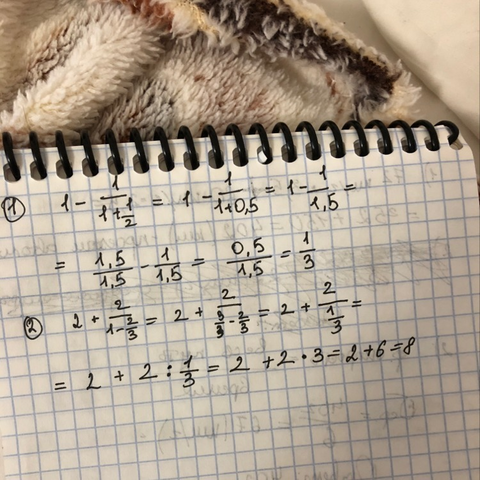 ① 1 - 1/(1+1/2) = 1 - 1/(1+0,5) = 1 - 1/1,5 =
= 1,5/1,5 - 1/1,5 = 0,5/1,5 = 1/3
② 2 + 2/(1-2/3) = 2 + 2/(3/3-2/3) = 2 + 2/(1/3) =
= 2 + 2 : 1/3 = 2 + 2 · 3 = 2 + 6 = 8